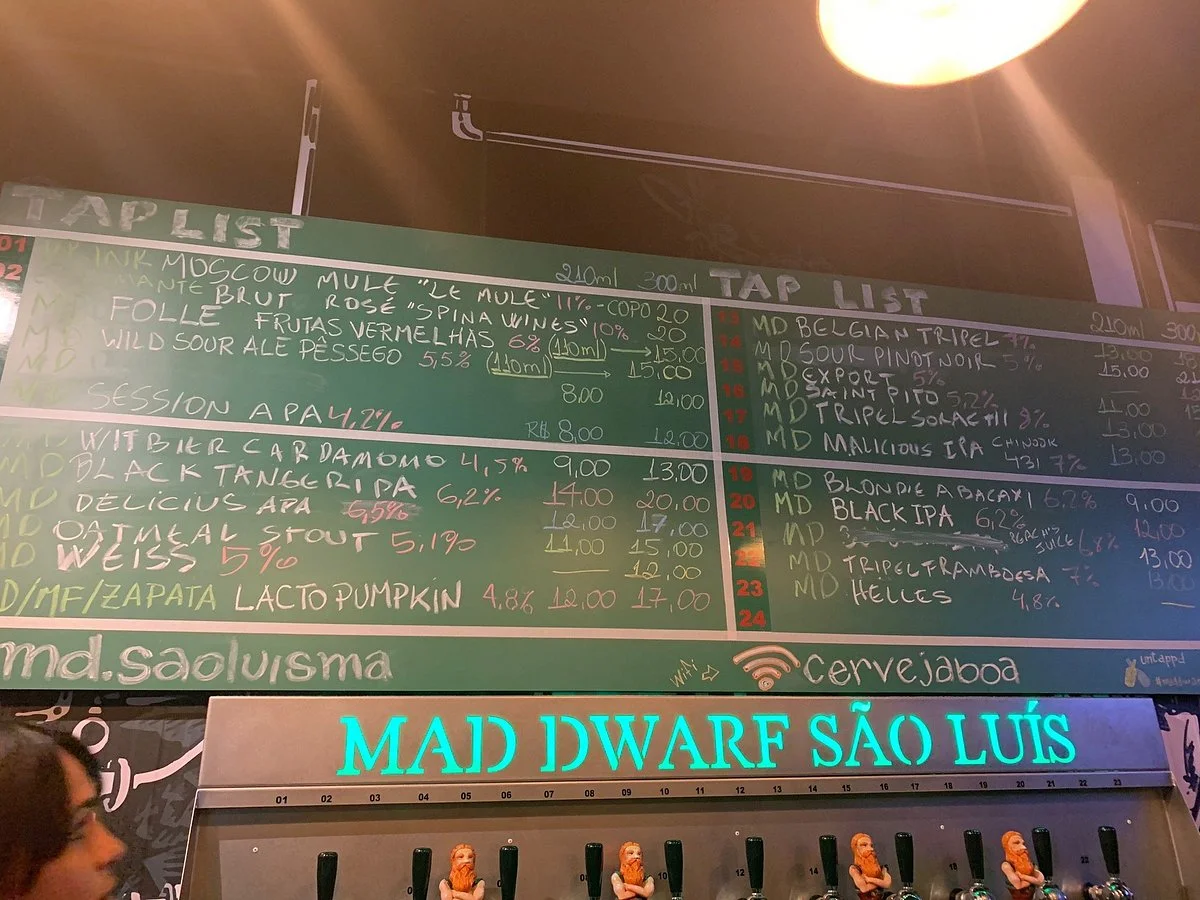 TAP LIST
210ml 300ml
01
02
INK MOSCOW MULE "LE MULE" 11% - COPO 20
BRUT ROSÉ "SPINA WINES" 10% 20
FOLLE FRUTAS VERMELHAS 6% (110ml) → 15,00
WILD SOUR ALE PÊSSEGO 5,5% (110ml) → 15,00
8,00 12,00
SESSION APA 4,2% R$ 8,00 12,00
WITBIER CARDAMOMO 4,5% 9,00 13,00
MD BLACK TANGERIPA 6,2% 14,00 20,00
MD DELICIUS APA 6,5% 12,00 17,00
MD OATMEAL STOUT 5,1% 11,00 15,00
MD WEISS 5% — 12,00
D/MF/ZAPATA LACTO PUMPKIN 4,8% 12,00 17,00
TAP LIST
210ml 300
13 MD BELGIAN TRIPEL 7% 13,00
14 MD SOUR PINOT NOIR 5% 15,00
15 MD EXPORT 5% —
16 MD SAINT PITO 5,2% 11,00
17 MD TRIPEL SORACHI 8% 13,00
18 MD MALICIOUS IPA CHINOOK 431 7% 13,00
19 MD BLONDIE ABACAXI 6,2% 9,00
20 MD BLACK IPA 6,2% 12,00
21 MD JUICE 6,8% 13,00
22 MD TRIPEL FRAMBOESA 7% 13,00
23 MD HELLES 4,8% —
24
md.saoluisma
WiFi cervejaboa
untappd
MAD DWARF SÃO LUÍS
01 02 03 04 05 06 07 08 09 10 11 12 13 14 15 16 17 18 19 20 21 22 23
10 12 14 18 22